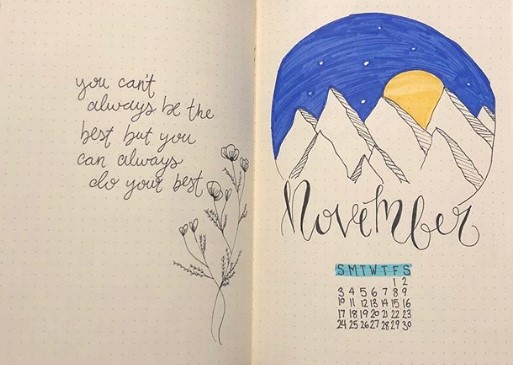 you can't
always be the
best but you
can always
do your best
November
S M T W T F S
1 2
3 4 5 6 7 8 9
10 11 12 13 14 15 16
17 18 19 20 21 22 23
24 25 26 27 28 29 30